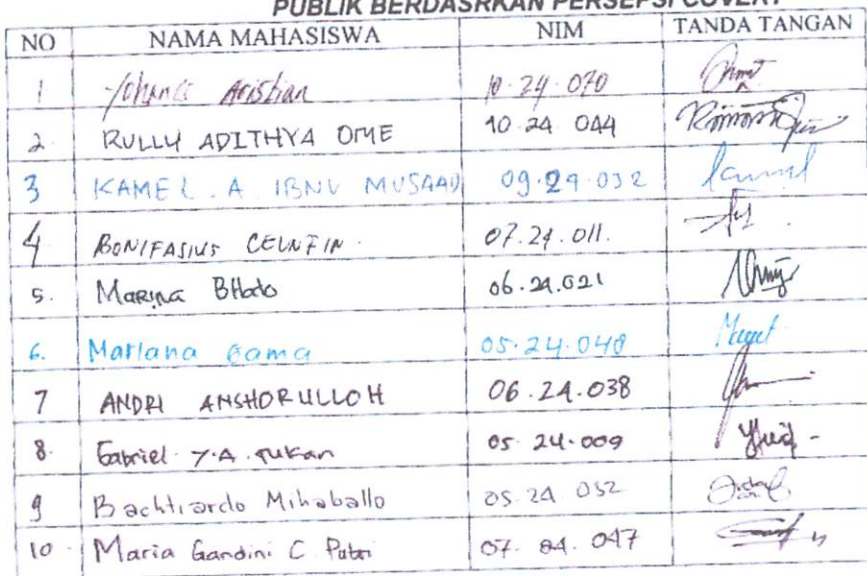 PUBLIK BERDASRKAN PERSEPSI COVERT
NO NAMA MAHASISWA NIM TANDA TANGAN
1 Yohanes Aristian 10.24.070
2. RULLY ADITHYA OME 10.24 044
3 KAMEL . A IBNU MUSAAD 09.24.032
4 BONIFASIUS 07.24.011.
5. MARINA BHato 06.24.021
6. Marlana Gama 05.24.048
7 ANDRI ANSHORULLOH 06.24.038
8. Gabriel Y.A. Tukan 05 24.009
9 Bachtiardo Mihaballo 05.24 052
10 Maria Gandini C. Putri 07. 24. 047